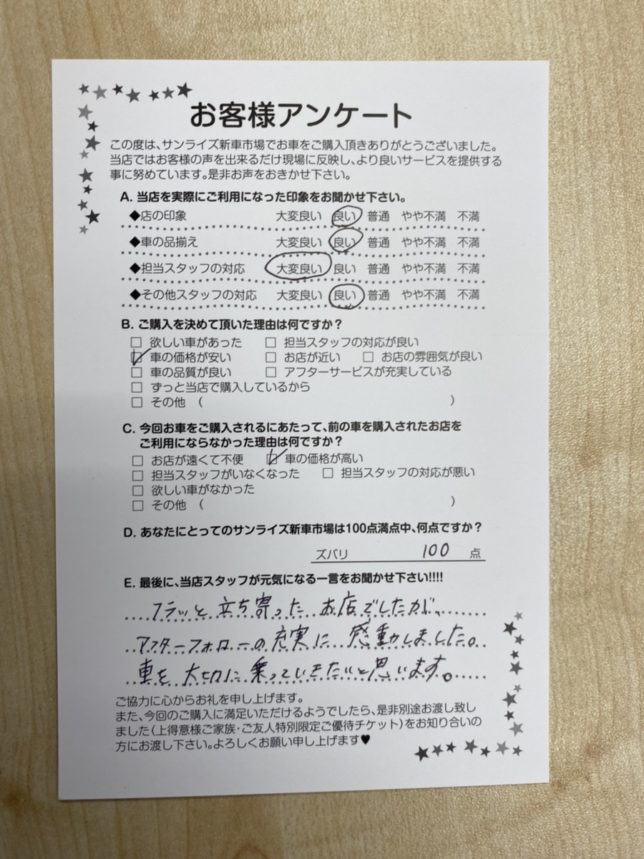 お客様アンケート
この度は、サンライズ新車市場でお車をご購入頂きありがとうございました。
当店ではお客様の声を出来るだけ現場に反映し、より良いサービスを提供する
事に努めています。是非お声をおきかせ下さい。
A. 当店を実際にご利用になった印象をお聞かせ下さい。
◆店の印象 大変良い 良い 普通 やや不満 不満
◆車の品揃え 大変良い 良い 普通 やや不満 不満
◆担当スタッフの対応 大変良い 良い 普通 やや不満 不満
◆その他スタッフの対応 大変良い 良い 普通 やや不満 不満
B. ご購入を決めて頂いた理由は何ですか？
□ 欲しい車があった □ 担当スタッフの対応が良い
☑ 車の価格が安い □ お店が近い □ お店の雰囲気が良い
□ 車の品質が良い □ アフターサービスが充実している
□ ずっと当店で購入しているから
□ その他 ( )
C. 今回お車をご購入されるにあたって、前の車を購入されたお店を
ご利用にならなかった理由は何ですか？
□ お店が遠くて不便 ☑ 車の価格が高い
□ 担当スタッフがいなくなった □ 担当スタッフの対応が悪い
□ 欲しい車がなかった
□ その他 ( )
D. あなたにとってのサンライズ新車市場は100点満点中、何点ですか？
ズバリ 100 点
E. 最後に、当店スタッフが元気になる一言をお聞かせ下さい!!!!
フラッと立ち寄ったお店でしたが、
アフターフォローの充実に感動しました。
車を大切に乗っていきたいと思います。
ご協力に心からお礼を申し上げます。
また、今回のご購入に満足いただけるようでしたら、是非別途お渡し致し
ました(上得意様ご家族・ご友人特別限定ご優待チケット)をお知り合いの
方にお渡し下さい。よろしくお願い申し上げます♥